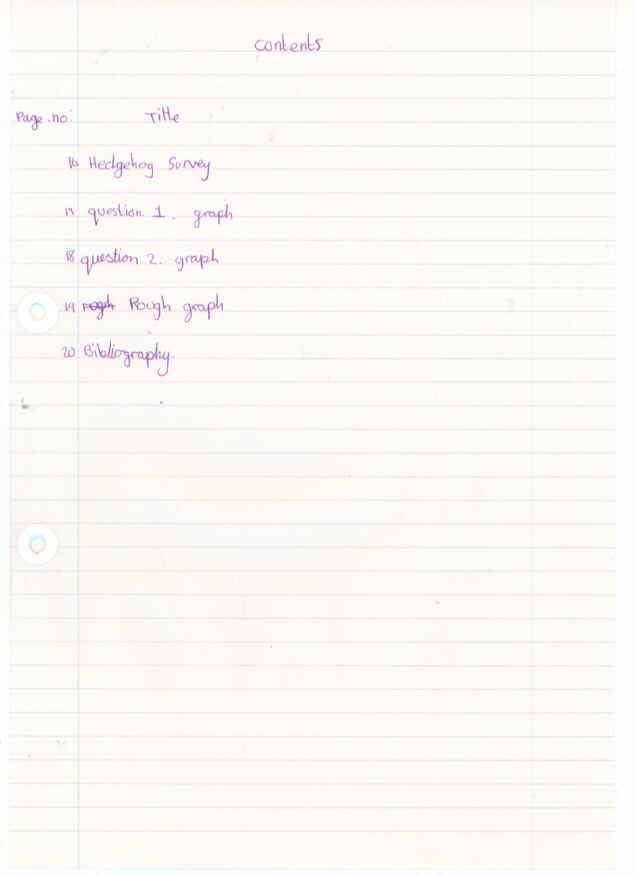 Contents
Page.no: Title
16 Hedgehog Survey
17 question 1. graph
18 question 2. graph
19 Rough graph
20 Bibliography.